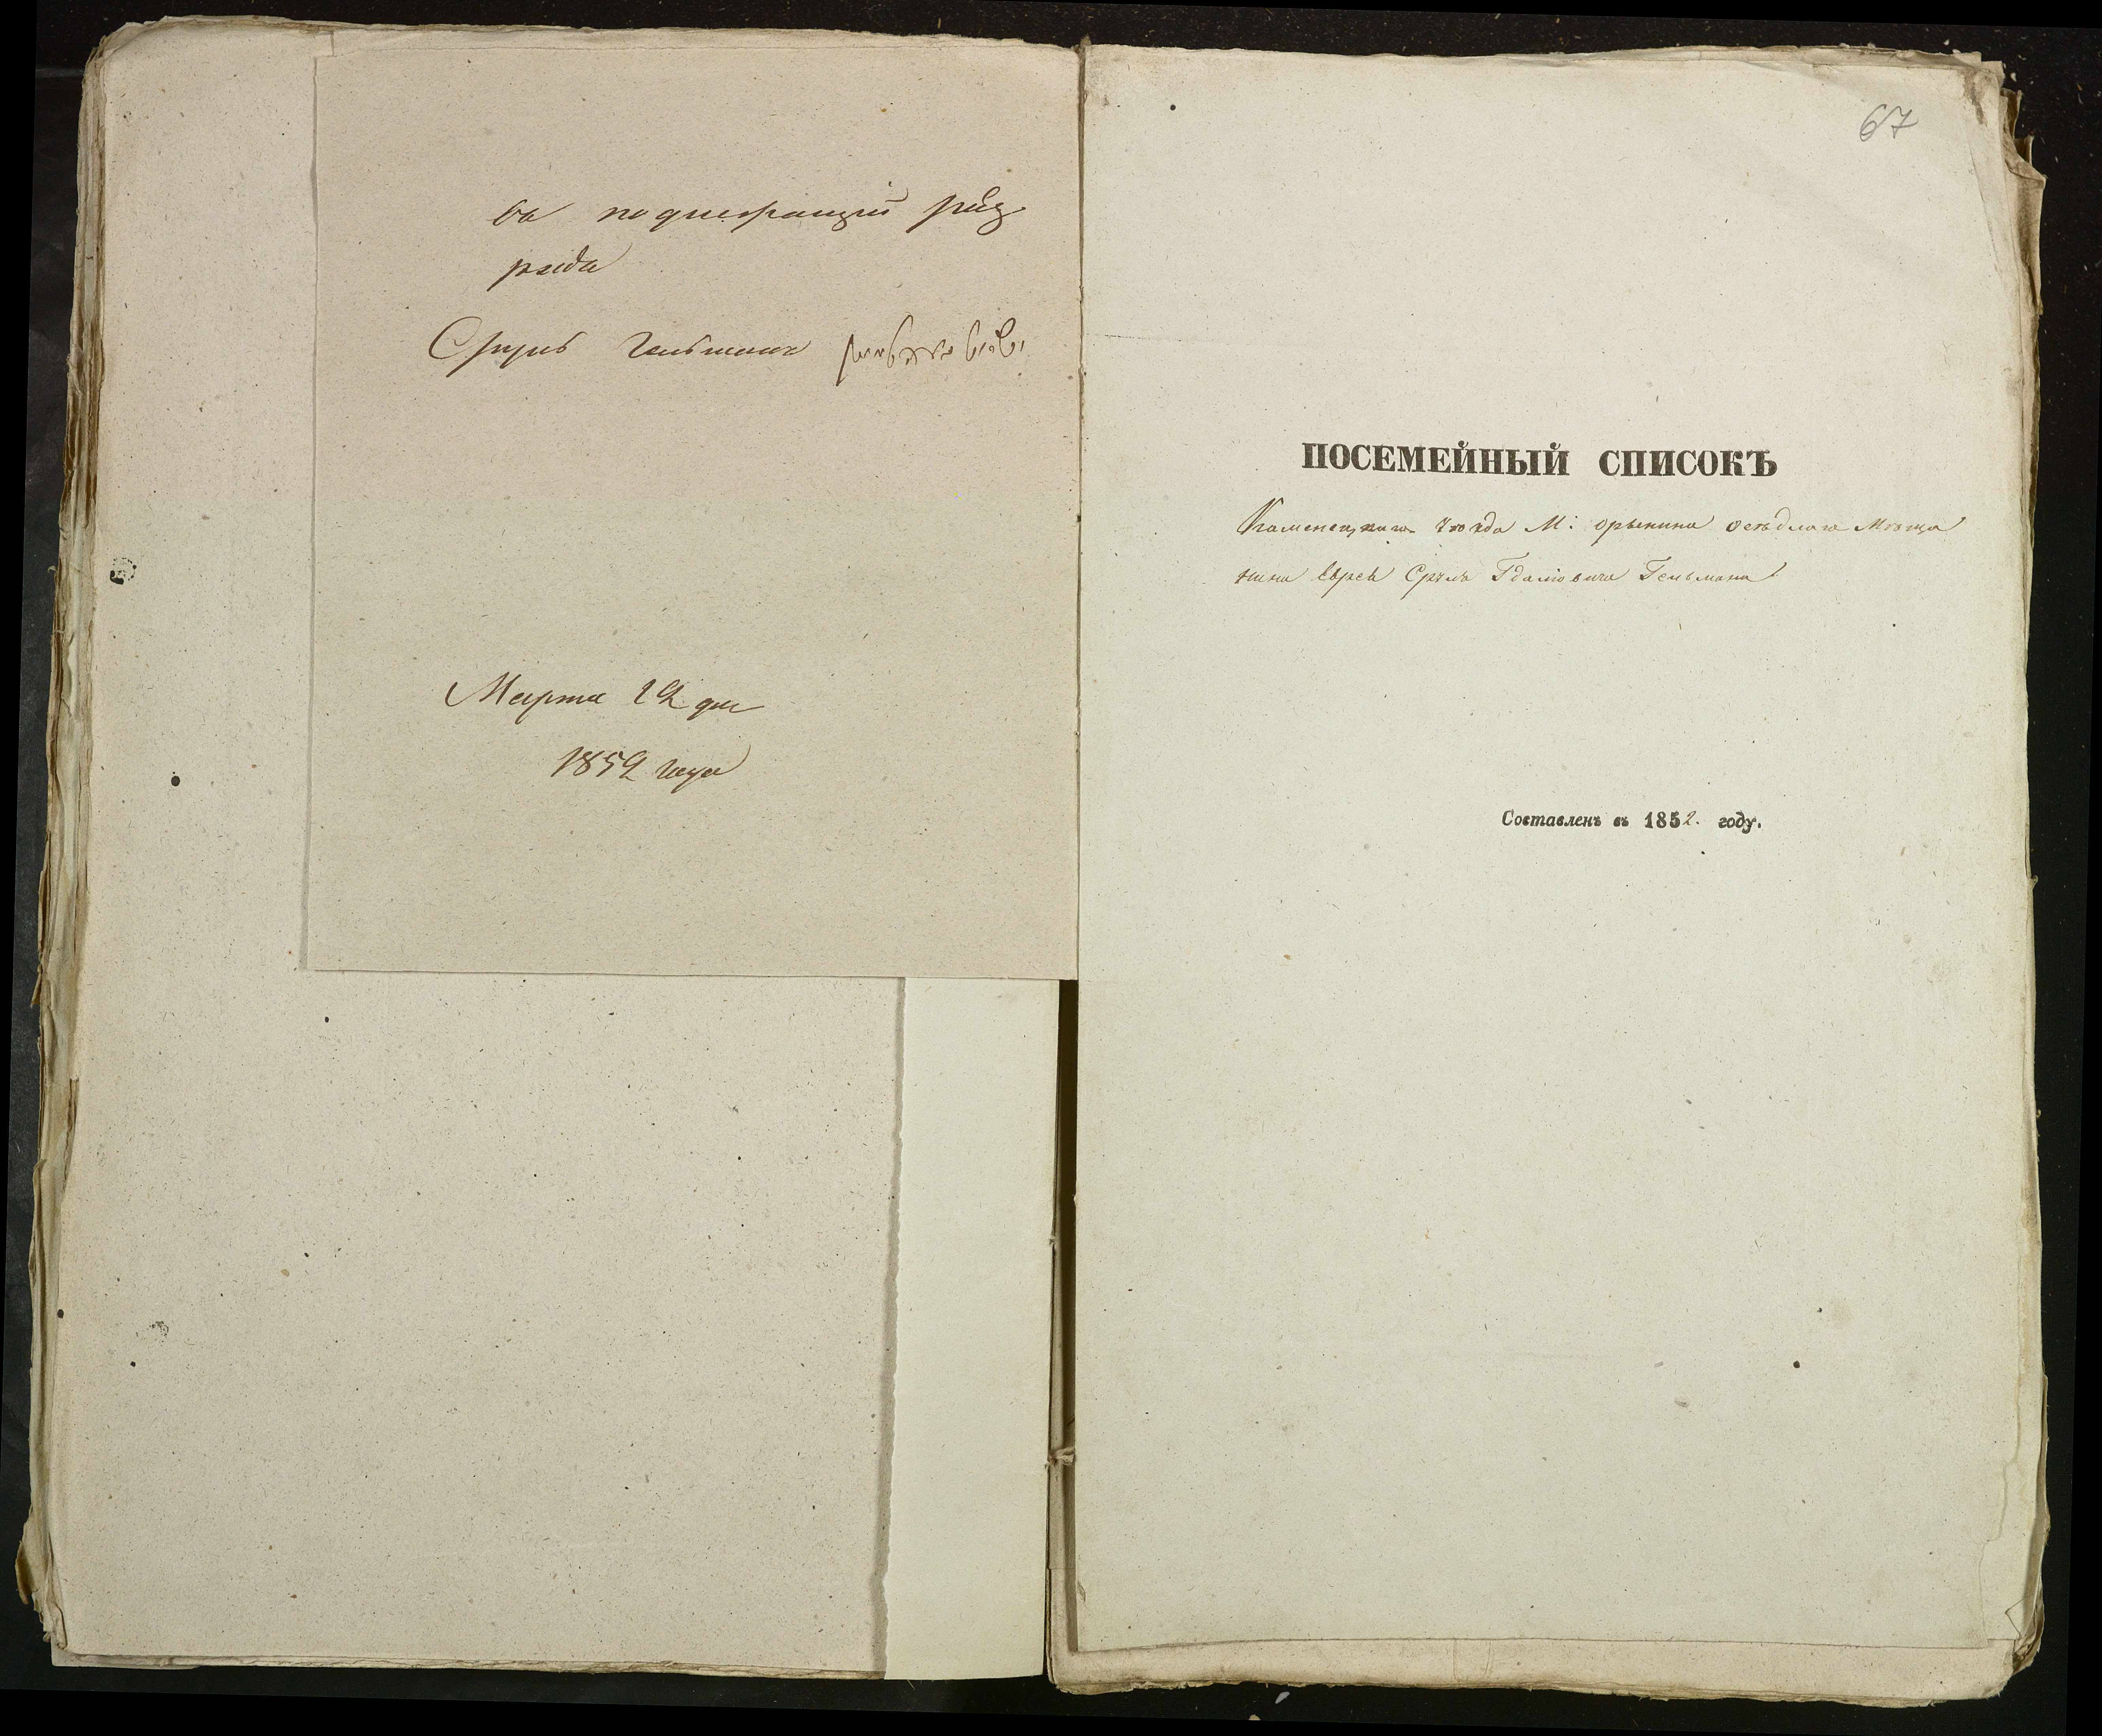 въ подлежащій раз
ряда
Сруль Гельманъ
Марта 12 дня
1852 года
67
ПОСЕМЕЙНЫЙ СПИСОКЪ
Каменецкаго уѣзда М: Орынина осѣдлаго Мѣща
нина Еврея Сруля Гдаліовича Гельмана
Составленъ въ 1852. году.